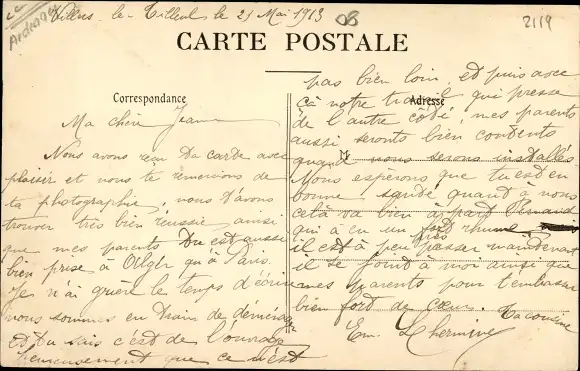 Villers-le-Tilleul le 21 Mai 1913
Ardennes
2119
CARTE POSTALE
Correspondance
Adresse
Ma chère Jeanne
Nous avons reçu ta carte avec
plaisir et nous te remercions de
ta photographie, nous t'avons
trouver très bien réussie, ainsi
que mes parents Tu est aussi
bien prise à Alger qu'à Paris.
Je n'ai guère le temps d'écrire
nous sommes en train de déménager
et tu sais c'est de l'ouvrage
heureusement que ce n'est
pas bien loin, et puis avec
çà notre travail qui presse
de l'autre côté, mes parents
aussi seronts bien contents
quand nous serons installés
Nous espérons que tu est en
bonne santé quant à nous
celà va bien à part Fernand
qui à eu un fort rhume
il est à peu près passer maintenant
il se joint à moi ainsi que
mes parents pour t'embrasser
bien fort de cœur. Ta cousine
Em. Lhermine